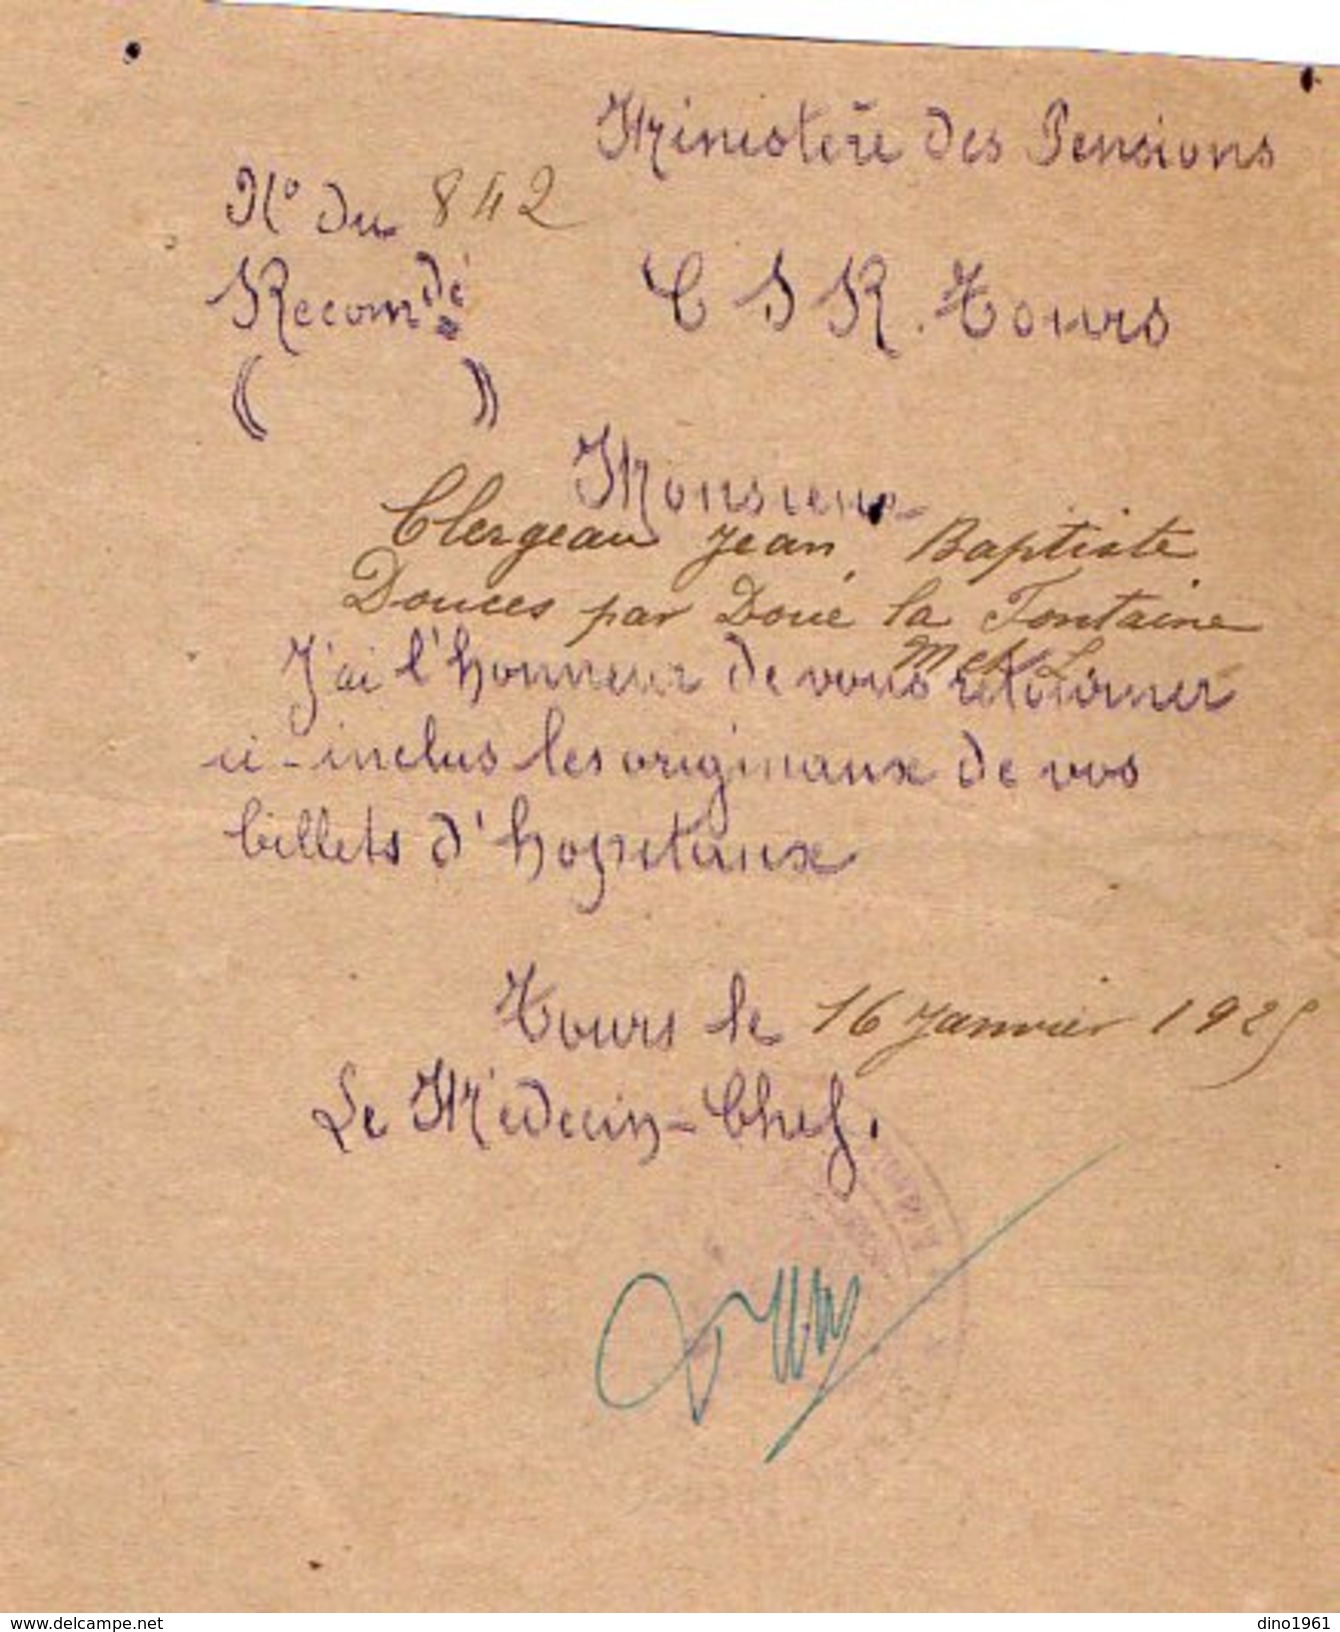 Ministère des Pensions
N° du 842
Recomdé
C S R. Tours
( )
Monsieur
Clergeau Jean Baptiste
Douces par Doué la Fontaine
M et L
J'ai l'honneur de vous retourner
ci-inclus les originaux de vos
billets d'hopitaux
Tours le 16 Janvier 1925
Le Médecin-Chef.
www.delcampe.net
dino1961